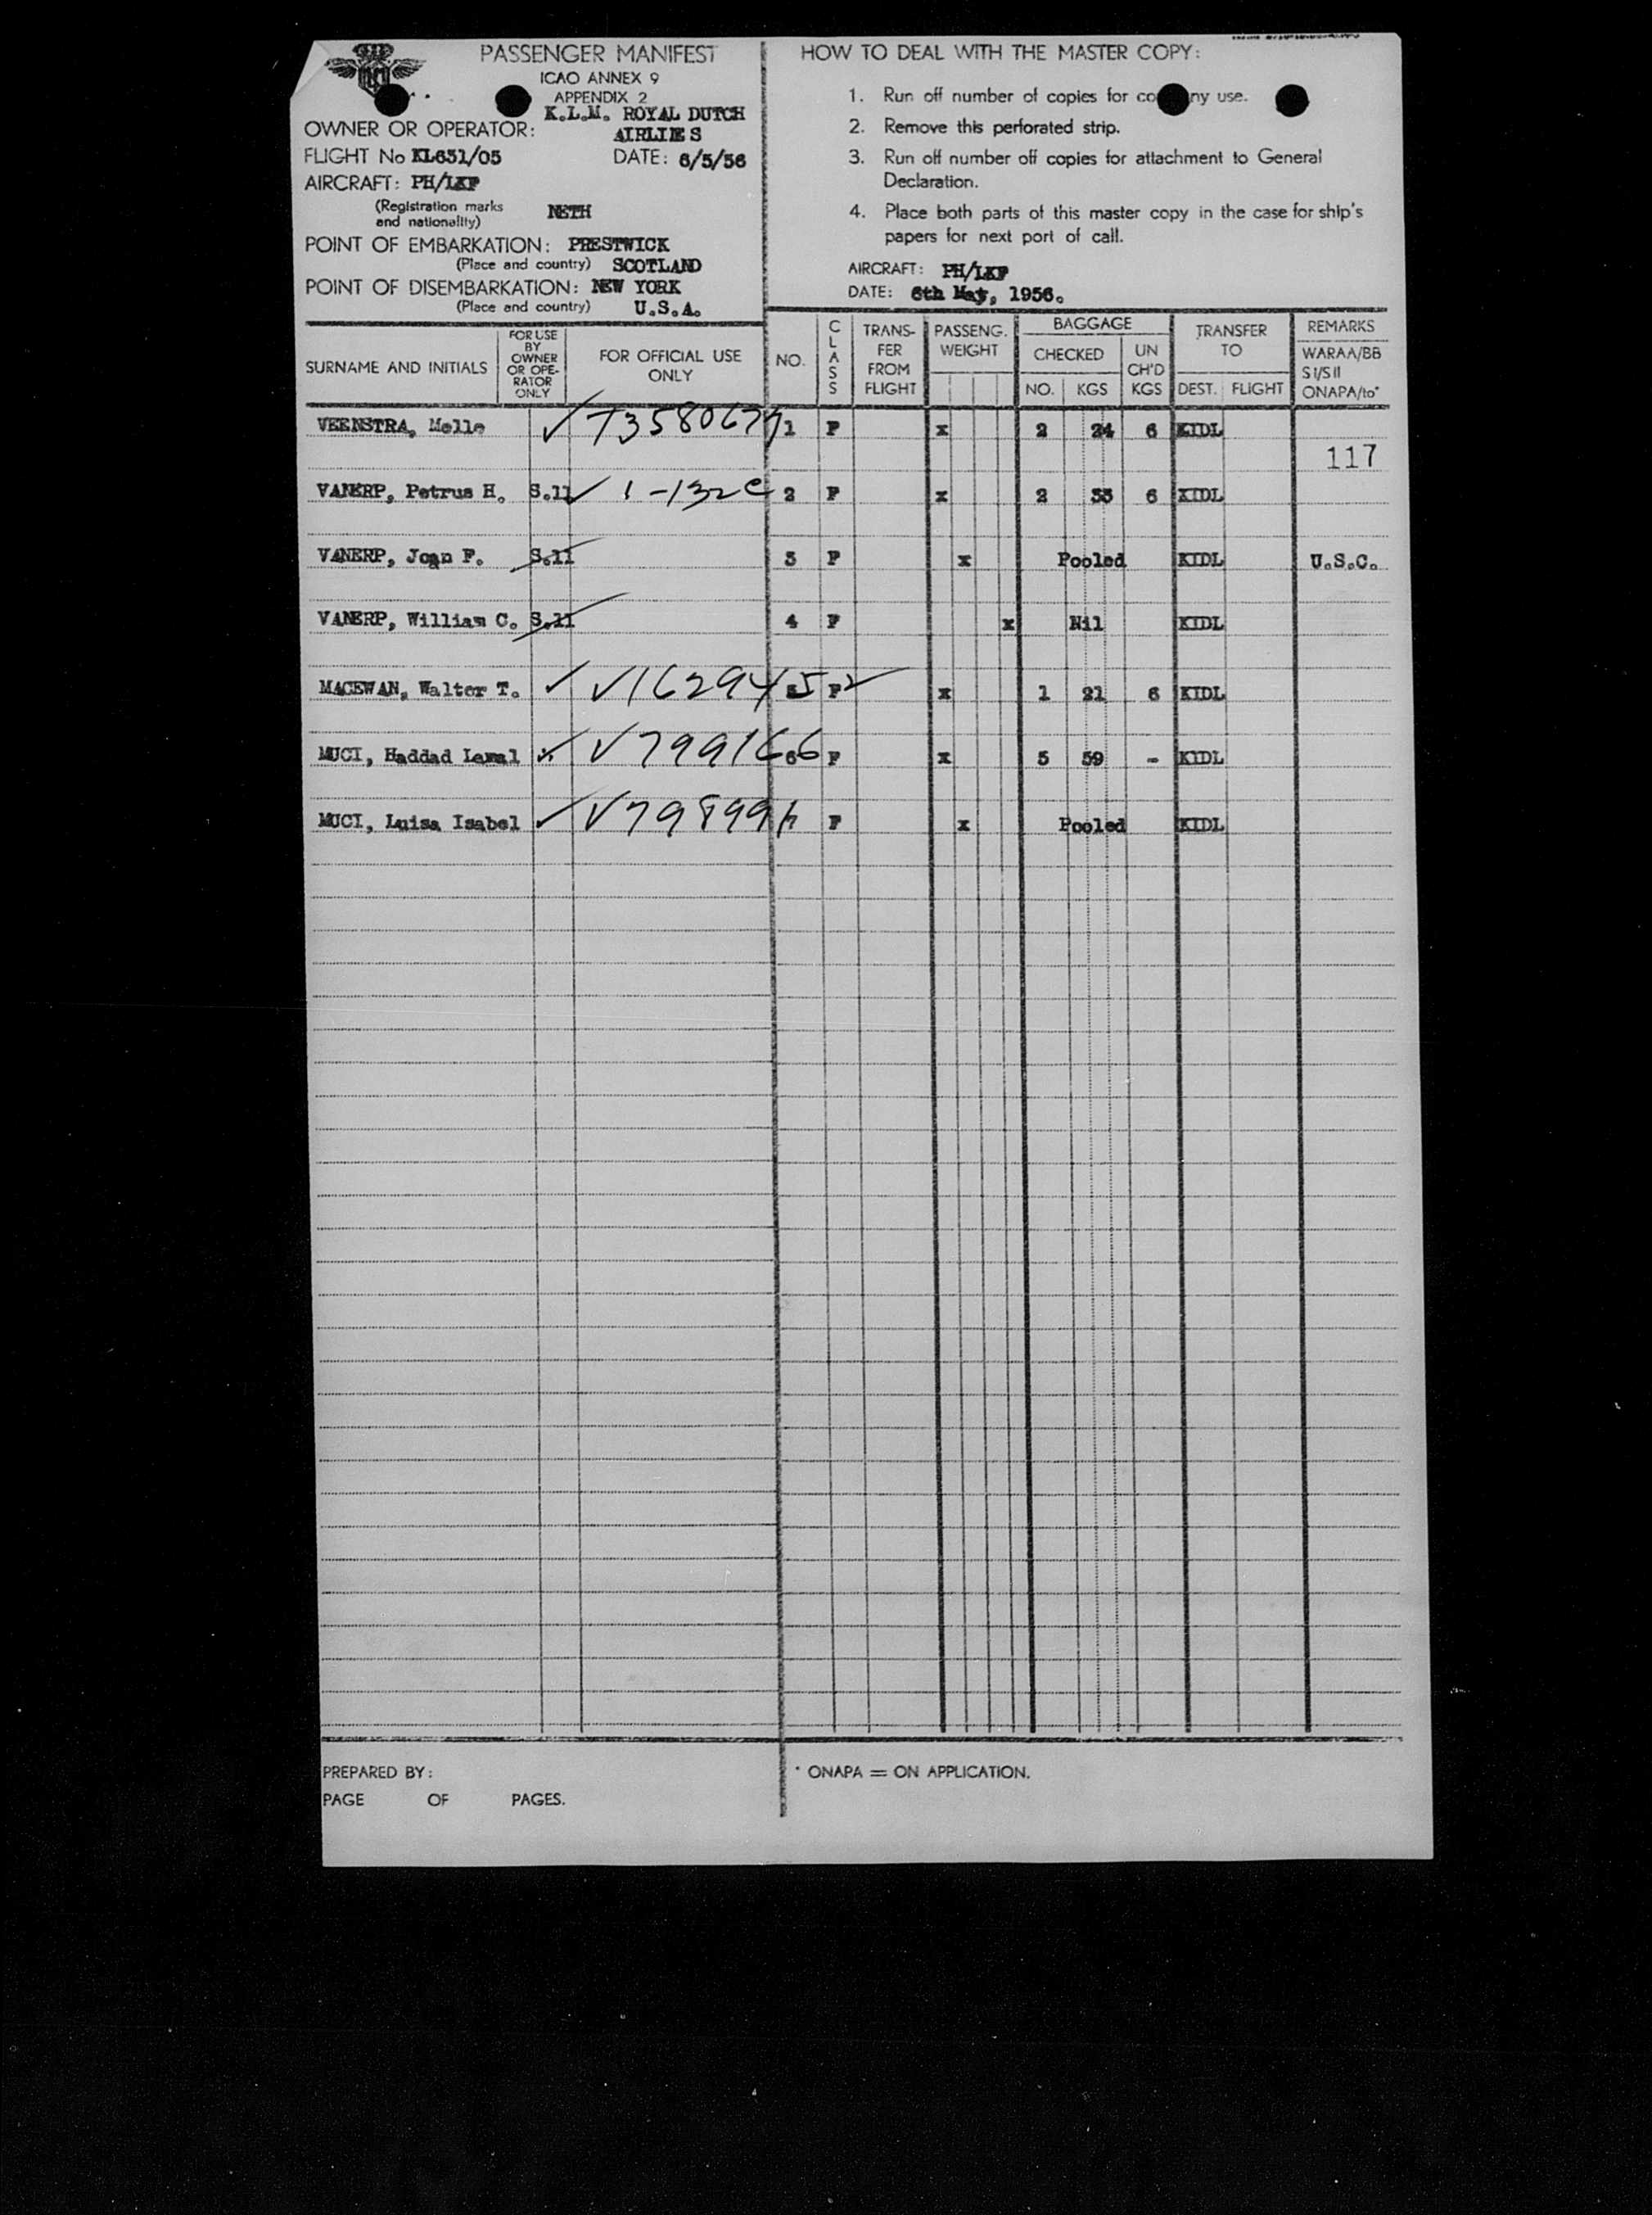 PASSENGER MANIFEST
ICAO ANNEX 9
APPENDIX 2
K.L.M. ROYAL DUTCH
OWNER OR OPERATOR: AIRLIE S
FLIGHT No KL651/05 DATE: 6/5/56
AIRCRAFT: PH/LKF
(Registration marks and nationality) NETH
POINT OF EMBARKATION: PRESTWICK
(Place and country) SCOTLAND
POINT OF DISEMBARKATION: NEW YORK
(Place and country) U.S.A.
HOW TO DEAL WITH THE MASTER COPY:
1. Run off number of copies for co ny use.
2. Remove this perforated strip.
3. Run off number off copies for attachment to General
Declaration.
4. Place both parts of this master copy in the case for ship's
papers for next port of call.
AIRCRAFT: PH/LKF
DATE: 6th May, 1956.
SURNAME AND INITIALS
FOR USE BY OWNER OR OPE- RATOR ONLY
FOR OFFICIAL USE ONLY
NO.
CLASS
TRANS- FER FROM FLIGHT
PASSENG. WEIGHT
BAGGAGE
CHECKED
NO. KGS
UN CH'D KGS
TRANSFER TO
DEST. FLIGHT
REMARKS
WARAA/BB
S I/S II
ONAPA/to*
VEENSTRA, Melle ✓ T3580674 1 F x 2 24 6 KIDL
117
VANERP, Petrus H. S.11 ✓ 1-132c 2 F x 2 33 6 KIDL
VANERP, Joan F. S.11 3 F x Pooled KIDL U.S.C.
VANERP, William C. S.11 4 F x Nil KIDL
MACEWAN, Walter T. ✓ V1629452 5 F x 1 21 6 KIDL
MUCI, Haddad Lemal ✓ V799166 6 F x 5 59 - KIDL
MUCI, Luisa Isabel ✓ 7 F x Pooled KIDL
PREPARED BY:
PAGE OF PAGES.
* ONAPA = ON APPLICATION.